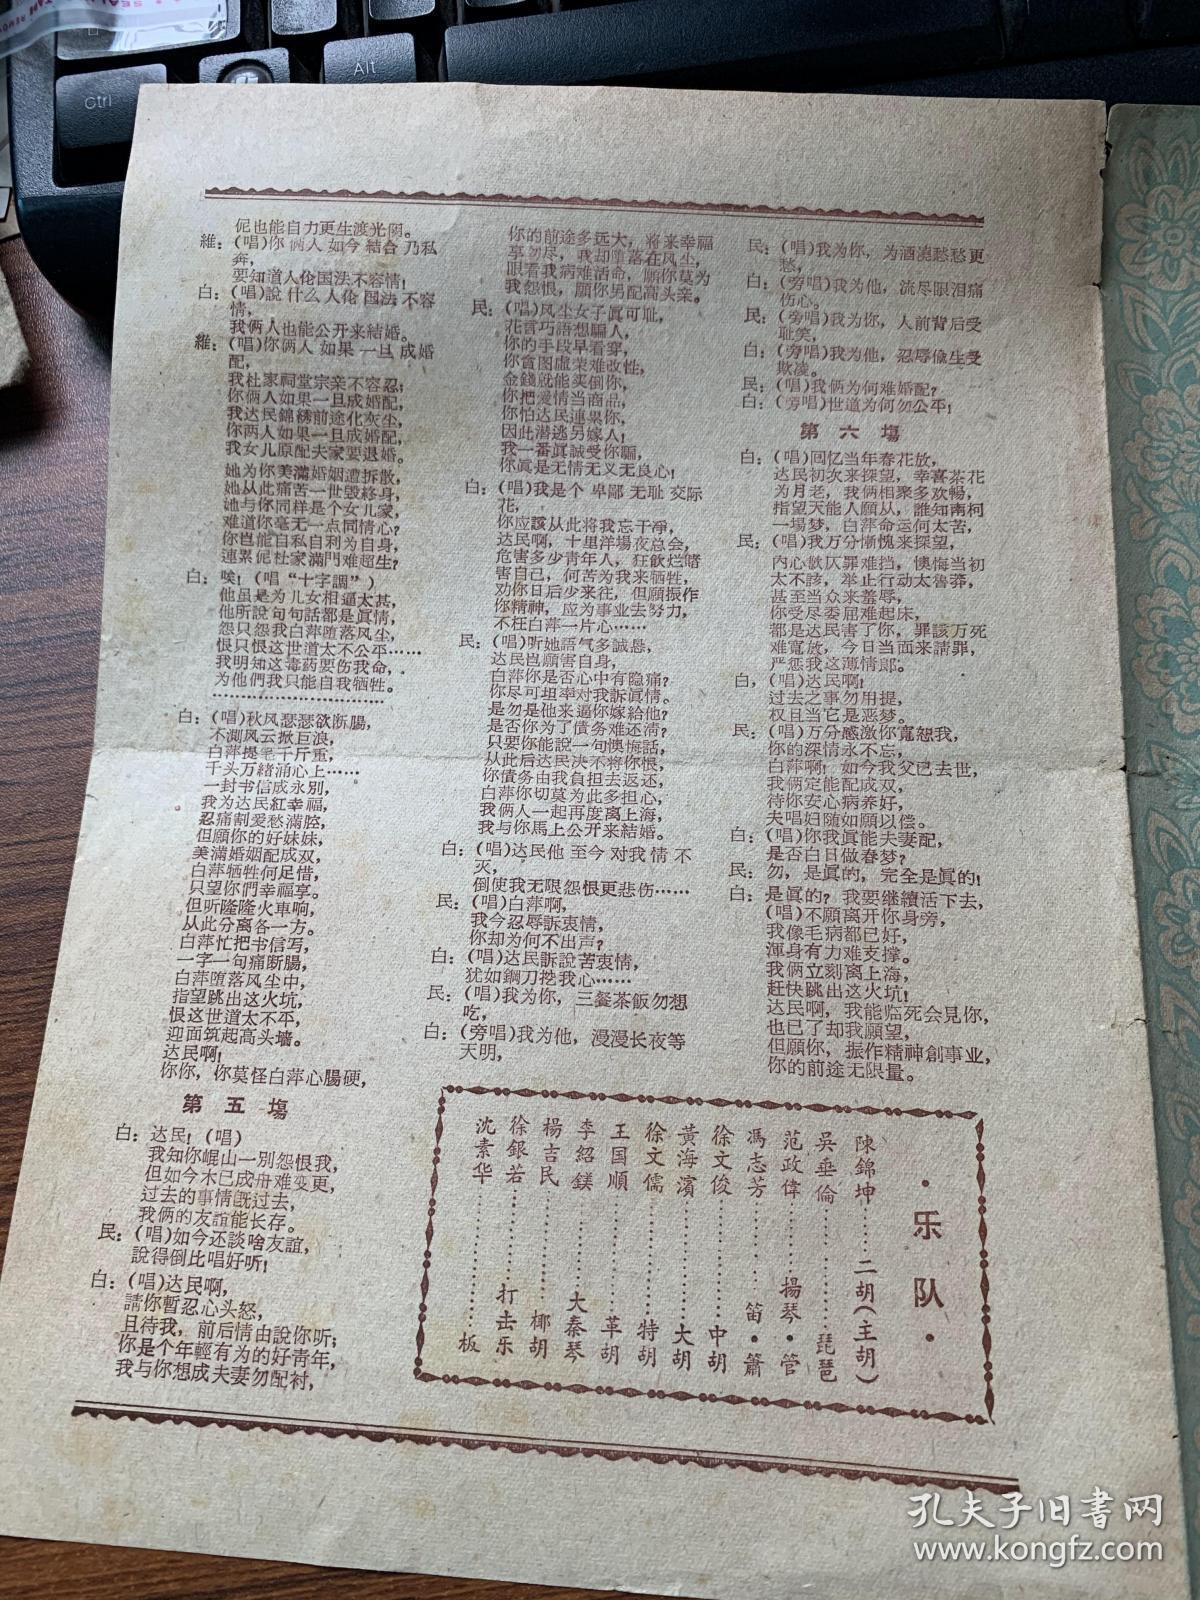 伲也能自力更生渡光阴。
維：(唱)你俩人如今結合乃私
奔，
要知道人伦国法不容情！
白：(唱)說什么人伦国法不容
情，
我俩人也能公开来結婚。
維：(唱)你俩人如果一旦成婚
配，
我杜家祠堂宗亲不容忍；
你俩人如果一旦成婚配，
我达民錦綉前途化灰尘，
你两人如果一旦成婚配，
我女儿原配夫家要退婚。
她为你美滿婚姻遭拆散，
她从此痛苦一世毁終身，
她与你同样是个女儿家，
难道你毫无一点同情心？
你岂能自私自利为自身，
連累伲杜家滿門难超生？
白：唉！(唱“十字調”)
他虽是为儿女相逼太甚，
他所說句句話都是眞情，
怨只怨我白萍堕落风尘，
恨只恨这世道太不公平……
我明知这毒药要伤我命，
为他們我只能自我牺牲。
…………………………
白：(唱)秋风瑟瑟欲断腸，
不測风云掀巨浪，
白萍提笔千斤重，
千头万緒涌心上……
一封书信成永別，
我为达民紅幸福，
忍痛割爱愁滿腔，
但願你的好妹妹，
美滿婚姻配成双，
白萍牺牲何足惜，
只望你們幸福享。
但听隆隆火車响，
从此分离各一方。
白萍忙把书信写，
一字一句痛断腸，
白萍堕落风尘中，
指望跳出这火坑，
恨这世道太不平，
迎面筑起高头墙。
达民啊！
你你，你莫怪白萍心腸硬，
第五場
白：达民！(唱)
我知你崐山一別怨恨我，
但如今木已成舟难变更，
过去的事情既过去，
我俩的友誼能长存。
民：(唱)如今还談啥友誼，
說得倒比唱好听！
白：(唱)达民啊，
請你暫忍心头怒，
且待我，前后情由說你听；
你是个年輕有为的好青年，
我与你想成夫妻勿配衬，
你的前途多远大，将来幸福
享勿尽，我却堕落在风尘，
眼看我病难活命，願你莫为
我怨恨，願你另配高头亲。
民：(唱)风尘女子眞可耻，
花言巧語想騙人，
你的手段早看穿，
你貪图虛荣难改性，
金錢就能买倒你，
你把爱情当商品，
你怕达民連累你，
因此潜逃另嫁人！
我一番眞誠受你騙，
你眞是无情无义无良心！
白：(唱)我是个卑鄙无耻交际
花，
你应該从此将我忘干凈，
达民啊，十里洋場夜总会，
危害多少青年人，狂飲烂賭
害自己，何苦为我来牺牲，
劝你日后少来往，但願振作
你精神，应为事业去努力，
不枉白萍一片心……
民：(唱)听她語气多誠恳，
达民岂願害自身，
白萍你是否心中有隐痛？
你尽可坦率对我訴眞情。
是勿是他来逼你嫁給他？
是否你为了债务难还清？
只要你能說一句懊悔話，
从此后达民决不将你恨，
你债务由我負担去返还，
白萍你切莫为此多担心，
我俩人一起再度离上海，
我与你馬上公开来結婚。
白：(唱)达民他至今对我情不
灭，
倒使我无限怨恨更悲伤……
民：(唱)白萍啊，
我今忍辱訴衷情，
你却为何不出声？
白：(唱)达民訴說苦衷情，
犹如鋼刀挖我心……
民：(唱)我为你，三餐茶飯勿想
吃，
白：(旁唱)我为他，漫漫长夜等
天明，
民：(唱)我为你，为酒澆愁愁更
愁，
白：(旁唱)我为他，流尽眼泪痛
伤心。
民：(旁唱)我为你，人前背后受
耻笑，
白：(旁唱)我为他，忍辱偸生受
欺凌。
民：(唱)我俩为何难婚配？
白：(旁唱)世道为何勿公平！
第六場
白：(唱)回忆当年春花放，
达民初次来探望，幸喜茶花
为月老，我俩相聚多欢暢，
指望天能人願从，誰知南柯
一場梦，白萍命运何太苦，
民：(唱)我万分慚愧来探望，
内心歉仄罪难挡，懊悔当初
太不該，举止行动太魯莽，
甚至当众来羞辱，
你受尽委屈难起床，
都是达民害了你，罪該万死
难寬放，今日当面来請罪，
严惩我这薄情郎。
白，(唱)达民啊！
过去之事勿用提，
权且当它是恶梦。
民：(唱)万分感激你寬恕我，
你的深情永不忘，
白萍啊！如今我父已去世，
我俩定能配成双，
待你安心病养好，
夫唱妇随如願以偿。
白：(唱)你我眞能夫妻配，
是否白日做春梦？
民：勿，是眞的，完全是眞的！
白：是眞的？我要继續活下去，
(唱)不願离开你身旁，
我像毛病都已好，
渾身有力难支撑。
我俩立刻离上海，
赶快跳出这火坑！
达民啊，我能临死会見你，
也已了却我願望，
但願你，振作精神創事业，
你的前途无限量。
·乐队·
陳錦坤……二胡(主胡)
吳垂倫…………琵琶
范政偉……揚琴·管
馮志芳………笛·簫
徐文俊…………中胡
黃海濱…………大胡
徐文儒…………特胡
王国順…………革胡
李紹鎂………大秦琴
楊吉民…………椰胡
徐銀若………打击乐
沈素华……………板
Ctrl
Alt
孔夫子旧书网
www.kongfz.com